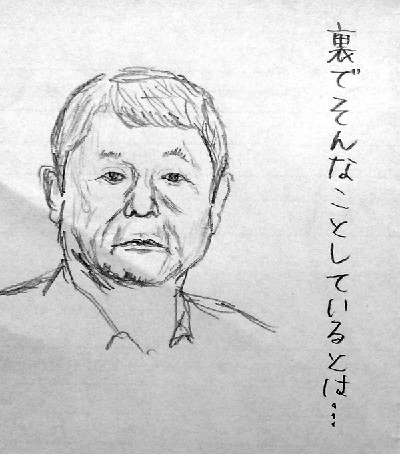 裏でそんなことしているとは…